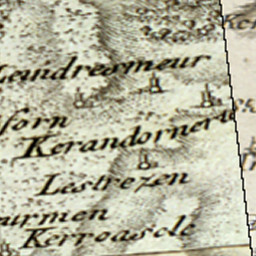 Leuidresmeur
forn
Kerandornerio
Lestrezen
urmen
Kerroascle